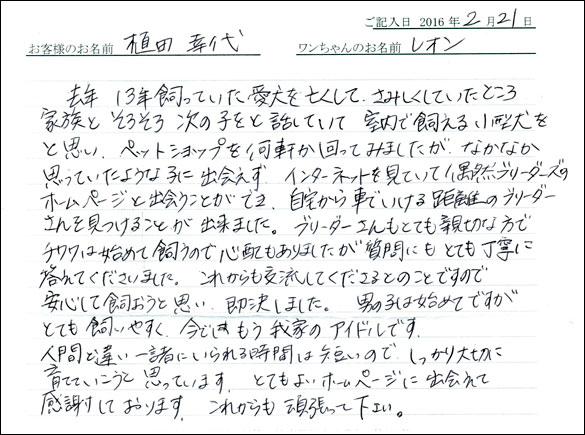 ご記入日 2016 年 2 月 21 日
お客様のお名前 植田 幸代 ワンちゃんのお名前 レオン
去年 13年飼っていた愛犬を亡くして、さみしくしていたところ
家族と そろそろ 次の子をと 話していて 室内で飼える 小型犬を
と思い、ペットショップを何軒か回ってみましたが、なかなか
思っていたような子に出会えず、インターネットを見ていて偶然ブリーダーズの
ホームページと出会うことができ、自宅から車でいける距離のブリーダー
さんを見つけることが出来ました。ブリーダーさんもとても親切な方で
チワワは始めて飼うので心配もありましたが質問にもとても丁寧に
答えてくださいました。これからも交流してくださるとのことですので
安心して飼おうと思い、即決しました。男の子は始めてですが
とても飼いやすく、今では もう 我家の アイドルです。
人間と違い一諸にいられる時間は短いので、しっかり大切に
育てていこうと 思っています。とてもよいホームページに出会えて
感謝しております。これからも頑張って下さい。